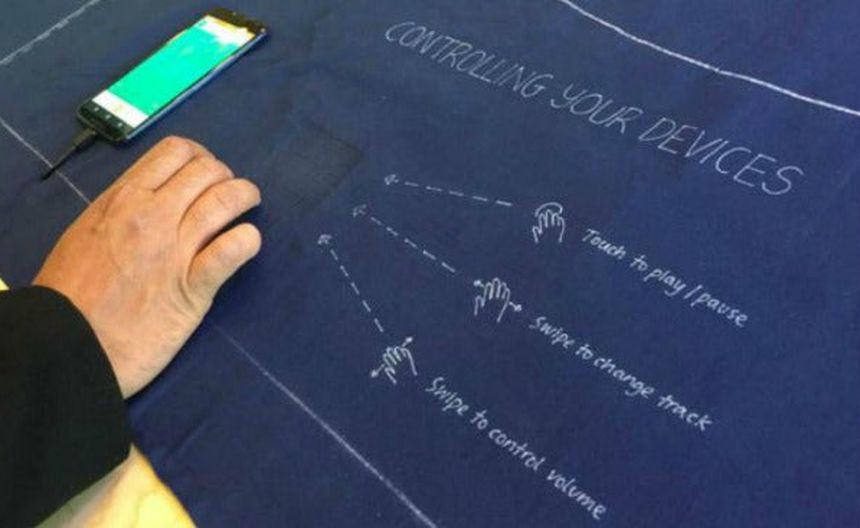 CONTROLLING YOUR DEVICES
Touch to play/pause
Swipe to change track
Swipe to control volume